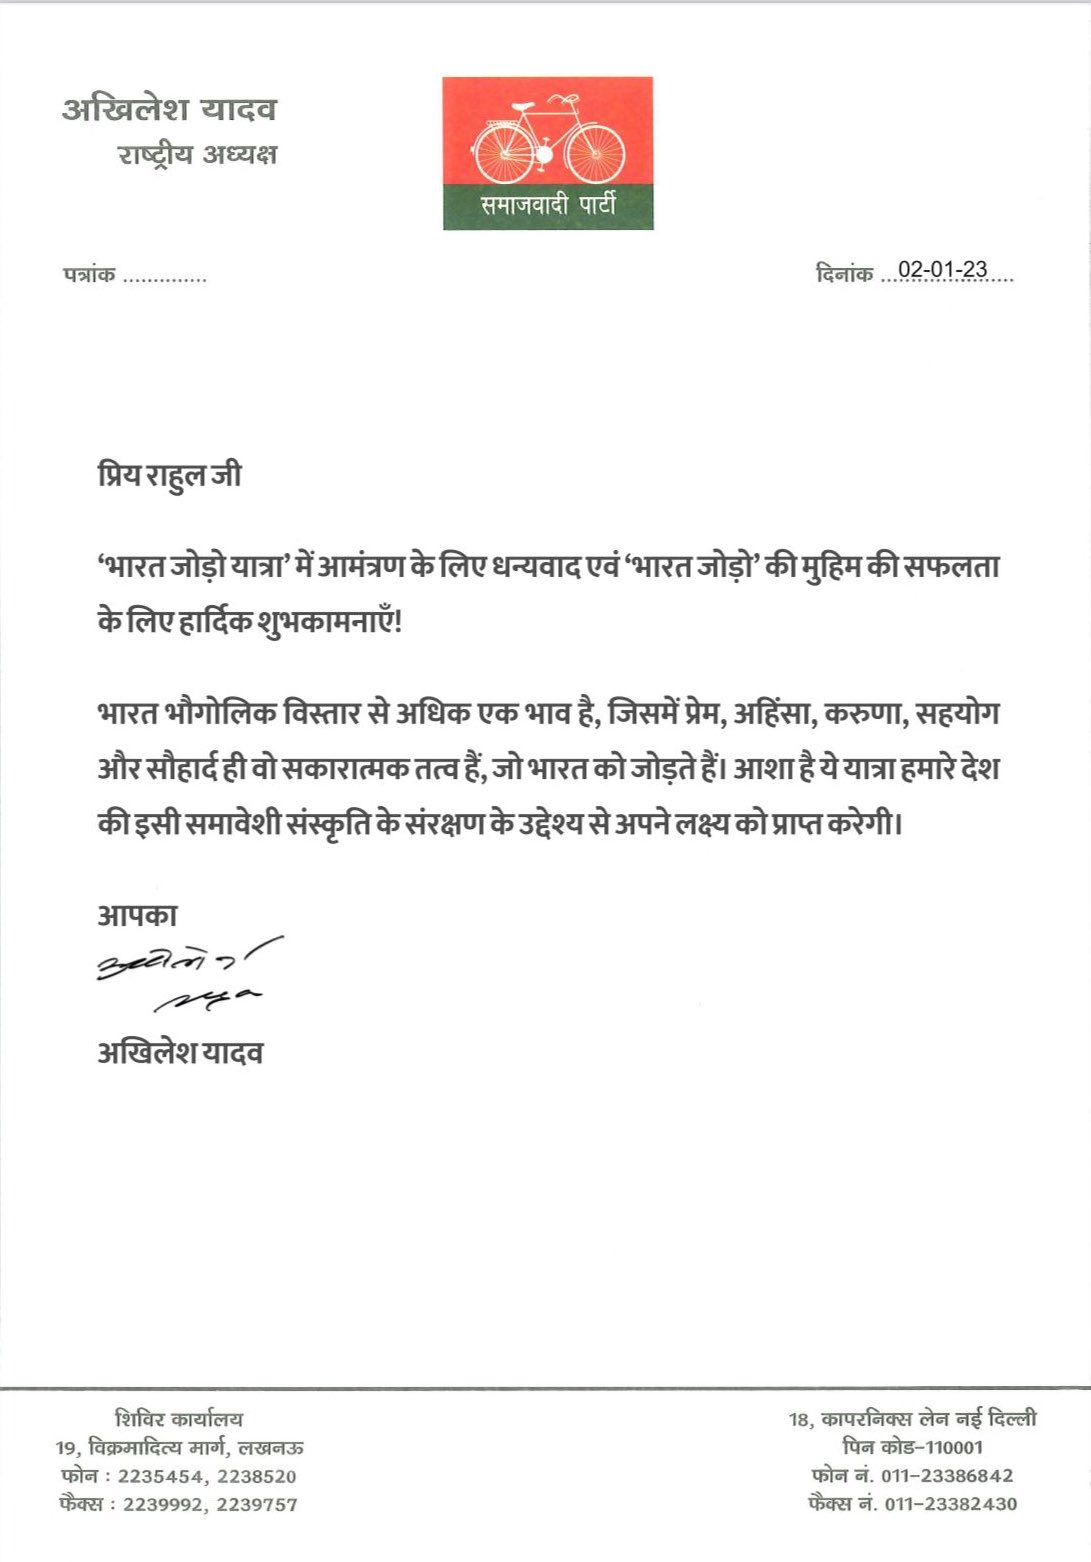 अखिलेश यादव
राष्ट्रीय अध्यक्ष
समाजवादी पार्टी
पत्रांक ..............
दिनांक ...02-01-23...
प्रिय राहुल जी
‘भारत जोड़ो यात्रा’ में आमंत्रण के लिए धन्यवाद एवं ‘भारत जोड़ो’ की मुहिम की सफलता
के लिए हार्दिक शुभकामनाएँ!
भारत भौगोलिक विस्तार से अधिक एक भाव है, जिसमें प्रेम, अहिंसा, करुणा, सहयोग
और सौहार्द ही वो सकारात्मक तत्व हैं, जो भारत को जोड़ते हैं। आशा है ये यात्रा हमारे देश
की इसी समावेशी संस्कृति के संरक्षण के उद्देश्य से अपने लक्ष्य को प्राप्त करेगी।
आपका
अखिलेश यादव
शिविर कार्यालय
19, विक्रमादित्य मार्ग, लखनऊ
फोन : 2235454, 2238520
फैक्स : 2239992, 2239757
18, कापरनिक्स लेन नई दिल्ली
पिन कोड-110001
फोन नं. 011-23386842
फैक्स नं. 011-23382430